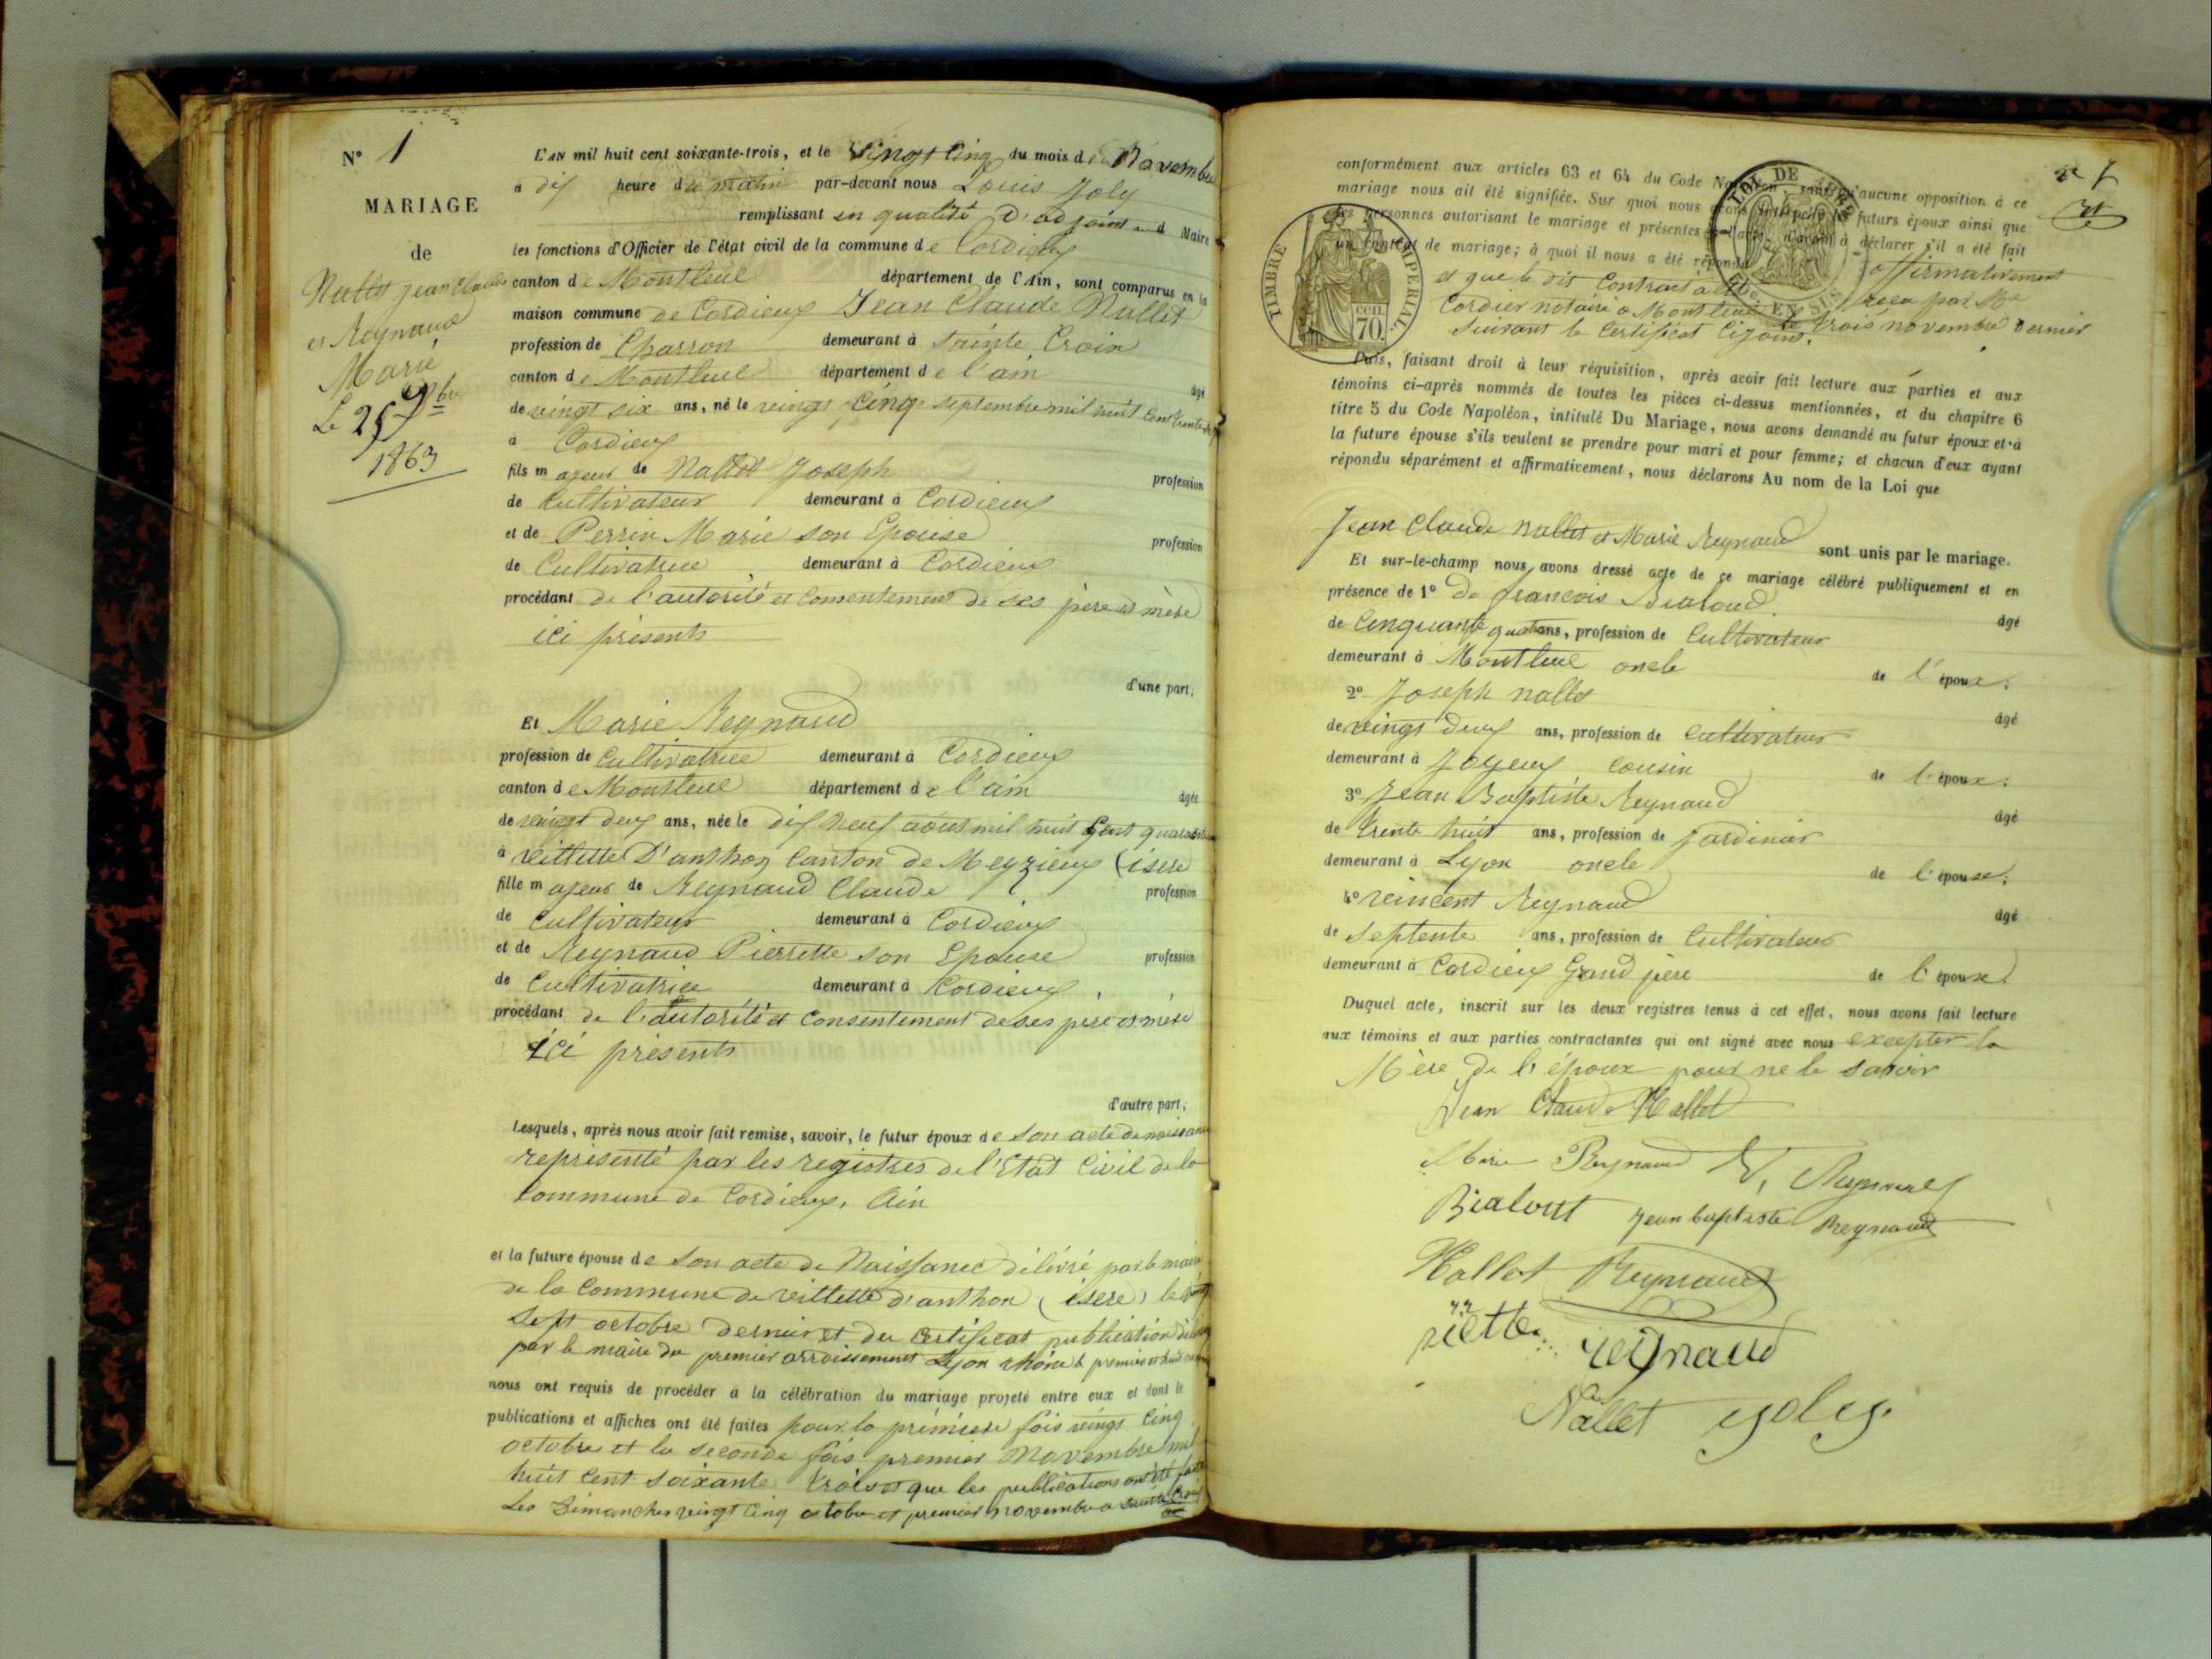 N° 1
MARIAGE
de
Nallet Jean Claude
et Reynaud
Marie
Le 25 9bre
1863
L'AN mil huit cent soixante-trois, et le vingt cinq du mois de Novembre
à dix heure du matin par-devant nous Louis Joly
remplissant en qualité d'adjoint Maire
les fonctions d'Officier de l'état civil de la commune de Cordieux
canton de Montluel département de l'Ain, sont comparus en la
maison commune de Cordieux Jean Claude Nallet
profession de Charron demeurant à Sainte Croix
canton de Montluel département de l'ain
âgé
de vingt six ans, né le vingt cinq septembre mil huit cent
à Cordieux
fils majeur de Nallet Joseph profession
de Cultivateur demeurant à Cordieux
et de Perrin Marie son Epouse profession
de Cultivatrice demeurant à Cordieux
procédant de l'autorité et consentement de ses père et mère
ici présents
d'une part;
Et Marie Reynaud
profession de Cultivatrice demeurant à Cordieux
canton de Montluel département de l'ain
âgée
de vingt deux ans, née le dix neuf aout mil huit cent
à veillette D'anthon Canton de Meyzieux (isere
fille majeur de Reynaud Claude profession
de Cultivateur demeurant à Cordieux
et de Reynaud Pierrette son Epouse profession
de Cultivatrice demeurant à Cordieux
procédant de l'autorité et consentement de ses père et mère
ici présents
d'autre part;
Lesquels, après nous avoir fait remise, savoir, le futur époux de son acte de naissance
représenté par les registres de l'Etat Civil de la
commune de Cordieux, Ain
et la future épouse de son acte de Naissance délivré par le maire
de la Commune de veillette d'anthon (isere) le vingt
sept octobre dernier et du certificat publication
par le maire du premier arroissement Lyon rhône le premier et huit
nous ont requis de procéder à la célébration du mariage projeté entre eux et dont les
publications et affiches ont été faites pour la première fois vingt cinq
octobre et la seconde fois premier Novembre mil
huit cent soixante trois et que les publications ont été faites
Les Dimanches vingt cinq octobre et premier novembre a Sainte Croix
conformément aux articles 63 et 64 du Code Napoléon, sans qu'aucune opposition à ce
mariage nous ait été signifiée. Sur quoi nous avons interpellé les futurs époux ainsi que
les personnes autorisant le mariage et présentes à déclarer s'il a été fait
un contrat de mariage; à quoi il nous a été répondu affirmativement
et que le dit Contrat à été recu par Me
Cordier notaire a Montluel le trois novembre dernier
suivant le Certificat Cijoint.
TIMBRE IMPERIAL
70 cen.
Puis, faisant droit à leur réquisition, après avoir fait lecture aux parties et aux
témoins ci-après nommés de toutes les pièces ci-dessus mentionnées, et du chapitre 6
titre 5 du Code Napoléon, intitulé Du Mariage, nous avons demandé au futur époux et à
la future épouse s'ils veulent se prendre pour mari et pour femme; et chacun d'eux ayant
répondu séparément et affirmativement, nous déclarons Au nom de la Loi que
Jean Claude Nallet et Marie Reynaud sont unis par le mariage.
Et sur-le-champ nous avons dressé acte de ce mariage célébré publiquement et en
présence de 1° De francois Bialoud âgé
de Cinquante quat ans, profession de Cultivateur
demeurant à Montluel oncle de l'époux.
2° Joseph nallet âgé
de vingt deux ans, profession de Cultivateur
demeurant à Joyeux Cousin de l'époux.
3° Jean Baptiste Reynaud âgé
de trente huit ans, profession de Jardinier
demeurant à Lyon oncle de l'épouse.
4° veincent Reynaud âgé
de Septente ans, profession de Cultivateur
demeurant à Cordieux Grand père de l'épouse
Duquel acte, inscrit sur les deux registres tenus à cet effet, nous avons fait lecture
aux témoins et aux parties contractantes qui ont signé avec nous excepter la
Mère de l'époux pour ne le savoir
Jean Claude Nallet
Marie Reynaud V, Reynaud
Bialout Jean baptiste Reynaud
Nallet Reynaud
reynaud
Nallet Joly